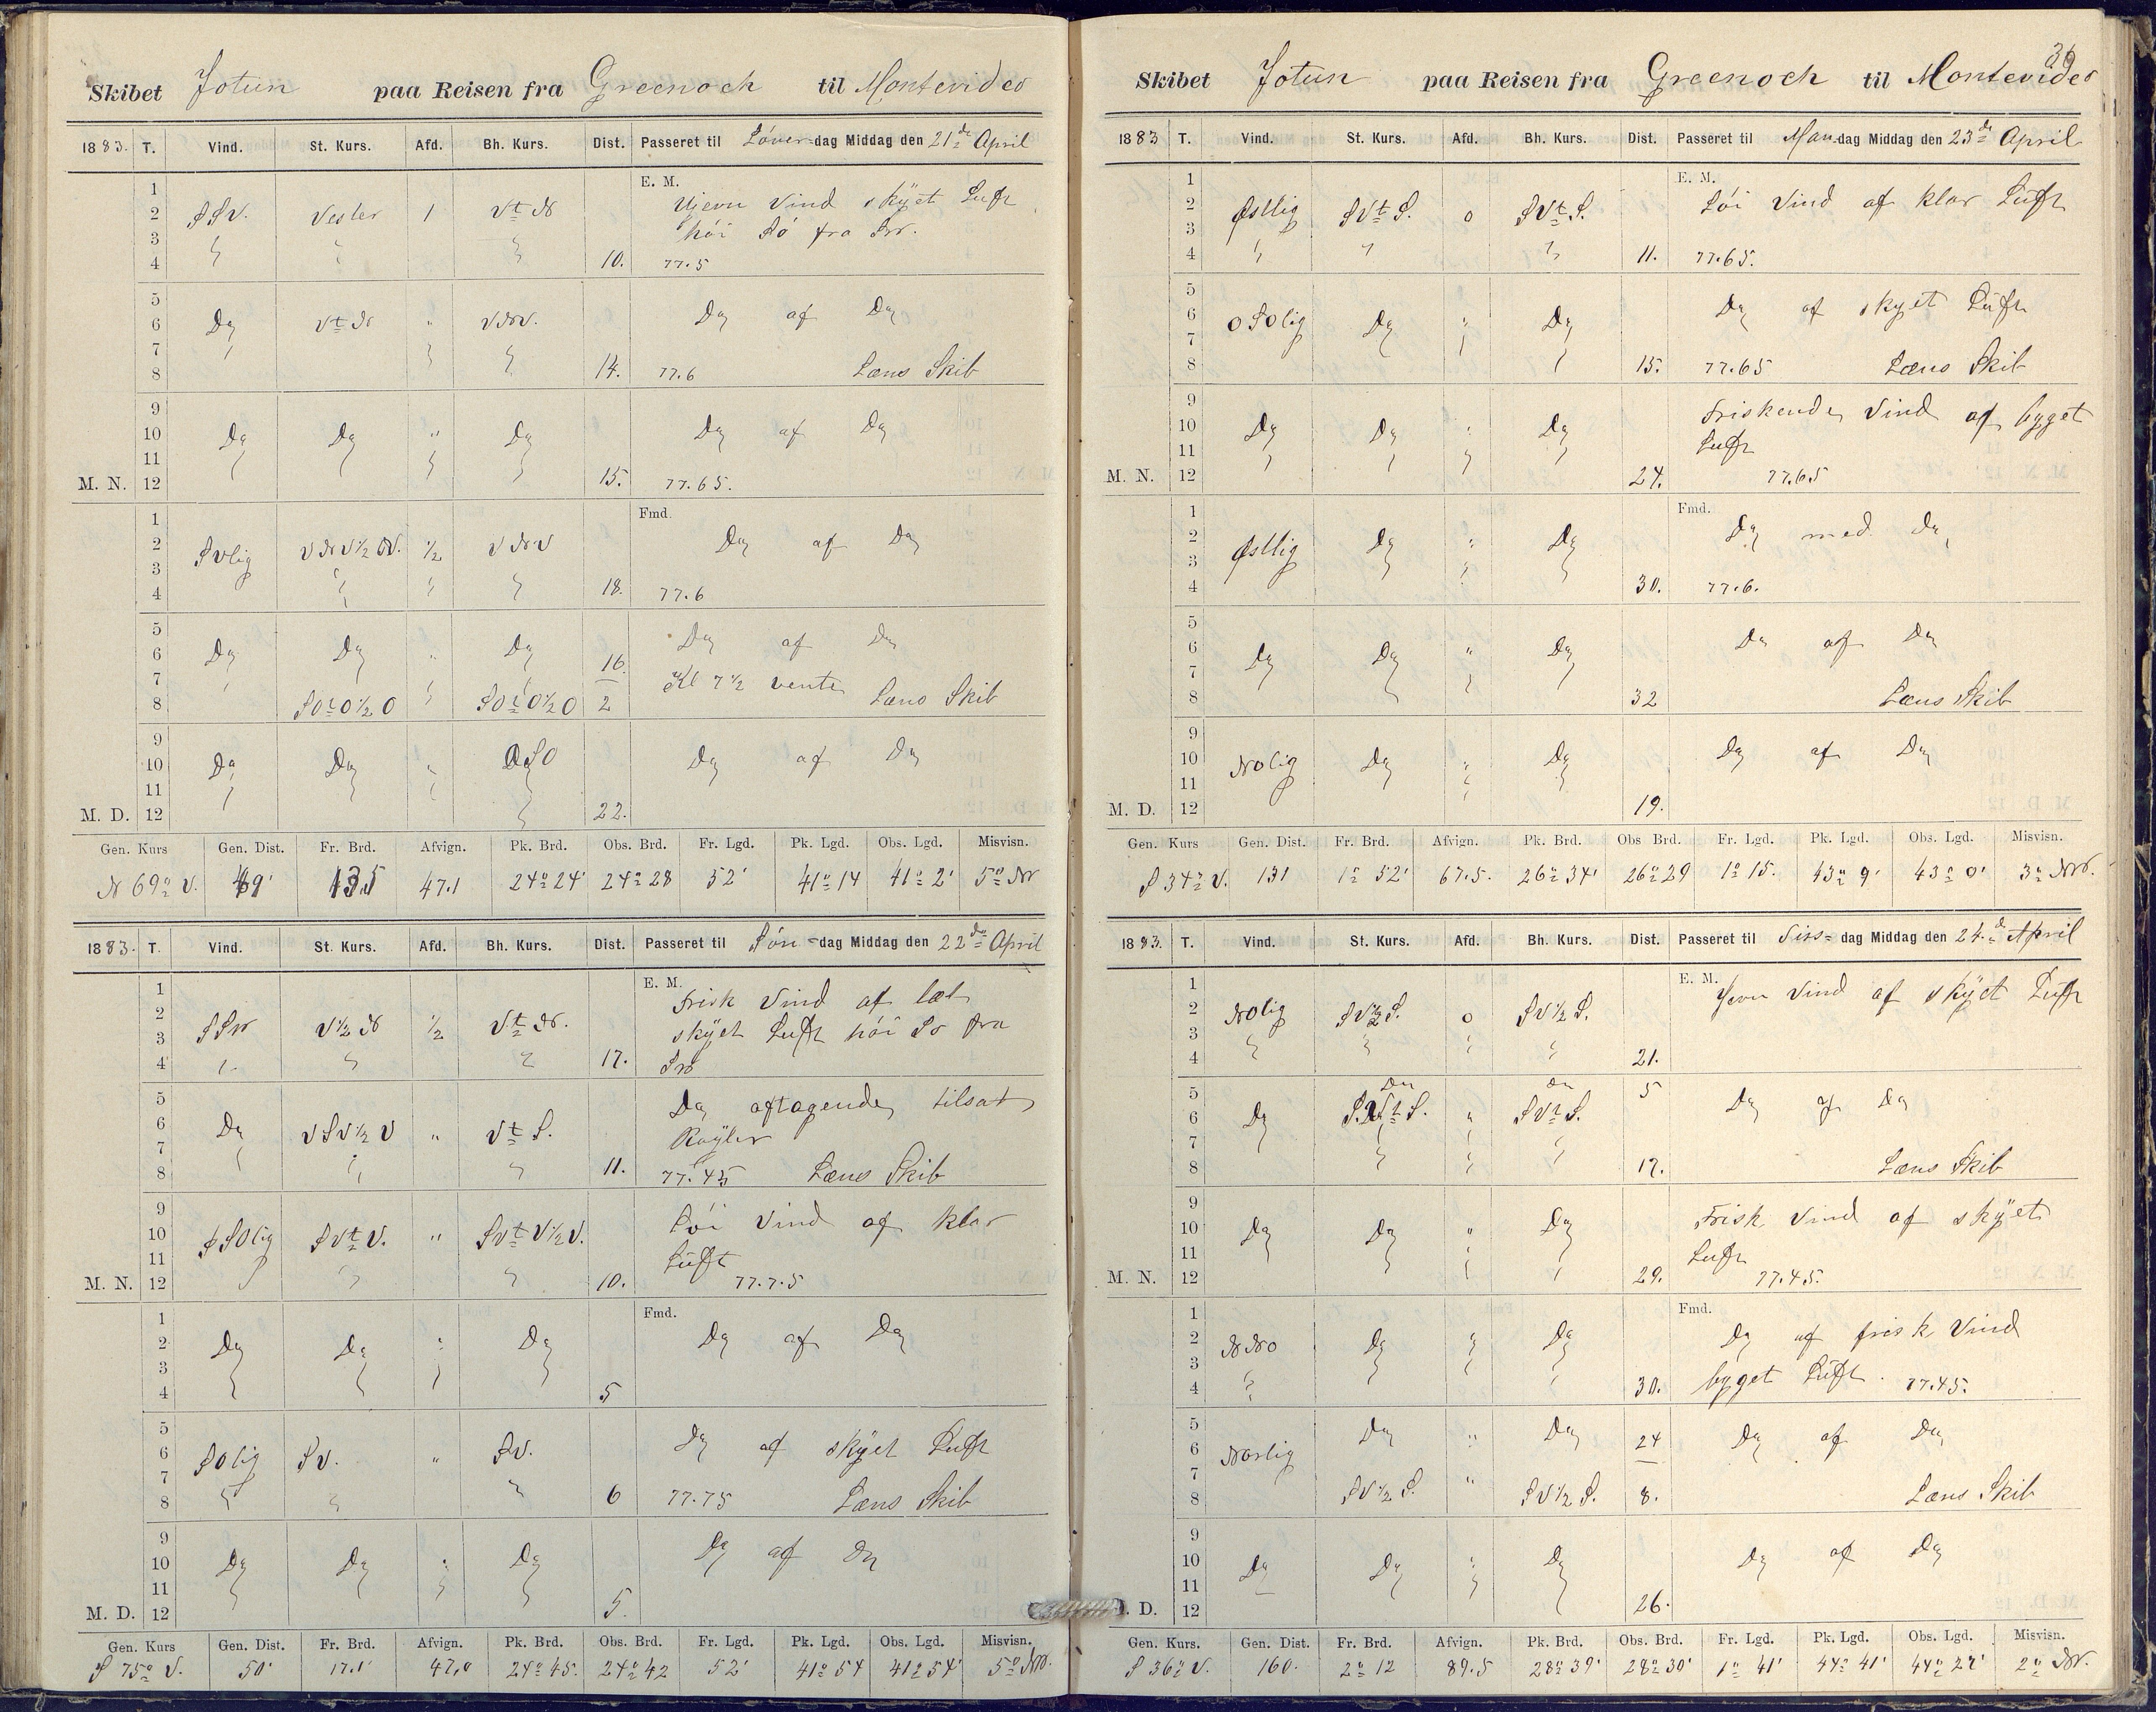 Skibet Jotun paa Reisen fra Greenock til Montevideo
1883. T. Vind. St. Kurs. Afd. Bh. Kurs. Dist. Passeret til Løver-dag Middag den 21de April
E. M.
1
2 SSV. Vester 1 Vt N Ujevn Vind skÿet Luft
3 høi Sø fra SW.
4 10. 77.5
5
6 Do Vt N " VNV. Do af Do
7
8 14. 77.6 Læns Skib
9
10 Do Do " Do Do af Do
11
M. N. 12 15. 77.65.
Fmd.
1
2 SVlig VNV½V. ½ VNV Do af Do
3
4 18. 77.6
5
6 Do Do " Do 16 Do af Do
7 Kl 7½ vente
8 SOtO½O SOtO½O 2 Læns Skib
9
10 Do Do " OSO Do af Do
11
M. D. 12 22.
Gen. Kurs Gen. Dist. Fr. Brd. Afvign. Pk. Brd. Obs. Brd. Fr. Lgd. Pk. Lgd. Obs. Lgd. Misvisn.
N 69° V. 49' 13.5 47.1 24° 24' 24° 28 52' 41° 14 41° 2' 5° NW
1883. T. Vind. St. Kurs. Afd. Bh. Kurs. Dist. Passeret til Søn-dag Middag den 22de April
E. M.
1 Frisk Vind af let
2
3 SSW V½N ½ Vt N. skÿet Luft høi Sø fra
4 17. SW
5 Do aftagende tilsat
6 Do VSV½V " Vt S. Røÿler
7
8 11. 77.45 Læns Skib
9
10 SSOlig SVt V. " SVt V½V. Løi Vind af klar
11 Luft
M. N. 12 10. 77.7.5
Fmd.
1
2 Do Do " Do Do af Do
3
4 5
5
6 SOlig SV. " SV. Do af skÿet Luft
7
8 6 77.75 Læns Skib
9
10 Do Do " Do Do af Do
11
M. D. 12 5.
Gen. Kurs Gen. Dist. Fr. Brd. Afvign. Pk. Brd. Obs. Brd. Fr. Lgd. Pk. Lgd. Obs. Lgd. Misvisn.
S 75° V. 50' 17.1' 47.0 24° 45. 24° 42 52' 41° 54 41° 54' 5° NW.
36
Skibet Jotun paa Reisen fra Greenock til Montevideo
1883 T. Vind. St. Kurs. Afd. Bh. Kurs. Dist. Passeret til Man-dag Middag den 23de April
E. M.
1
2 Østlig SVt S. 0 SVt S. Løi Vind af klar Luft
3
4 11. 77.65.
5
6 OSOlig Do " Do Do af skyet Luft
7
8 15. 77.65 Læns Skib
9
10 Do Do " Do Friskende Vind af bÿget
11 Luft
M. N. 12 24. 77.65
Fmd.
1
2 Østlig Do " Do Do med Do
3
4 30. 77.6.
5
6 Do Do " Do Do af Do
7
8 32 Læns Skib
9
10 NOlig Do " Do Do af Do
11
M. D. 12 19.
Gen. Kurs Gen. Dist. Fr. Brd. Afvign. Pk. Brd. Obs Brd. Fr. Lgd. Pk. Lgd. Obs. Lgd. Misvisn.
S 34° V. 131 1° 52' 67.5. 26° 34' 26° 29 1° 15. 43° 9' 43° 0' 3° NW.
1883. T. Vind. St. Kurs. Afd. Bh. Kurs. Dist. Passeret til Tirs-dag Middag den 24.de April
E. M.
1 Jevn Vind af skÿet Luft
2 NOlig SV½S. 0 SV½S.
3
4 21.
5 Do Do 5
6 Do SVt S. " SVt S. Do af Do
7
8 17. Læns Skib
9
10 Do Do " Do Frisk Vind af skÿet
11 Luft
M. N. 12 29. 77.45.
Fmd.
1
2 NNO Do " Do Do af frisk Vind
3
4 30. byget Luft. 77.45.
5
6 Norlig Do " Do 24 Do af Do
7
8 SV½S. " SV½S. 8. Læns Skib
9
10 Do Do " Do Do af Do
11
. D. 12 26.
Gen. Kurs. Gen. Dist. Fr. Brd. Afvign. Pk. Brd. Obs. Brd. Fr. Lgd. Pk. Lgd. Obs. Lgd. Misvisn.
S 36° V. 160. 2° 12 89.5 28° 39' 28° 30' 1° 41' 44° 41' 44° 27' 2° NW.